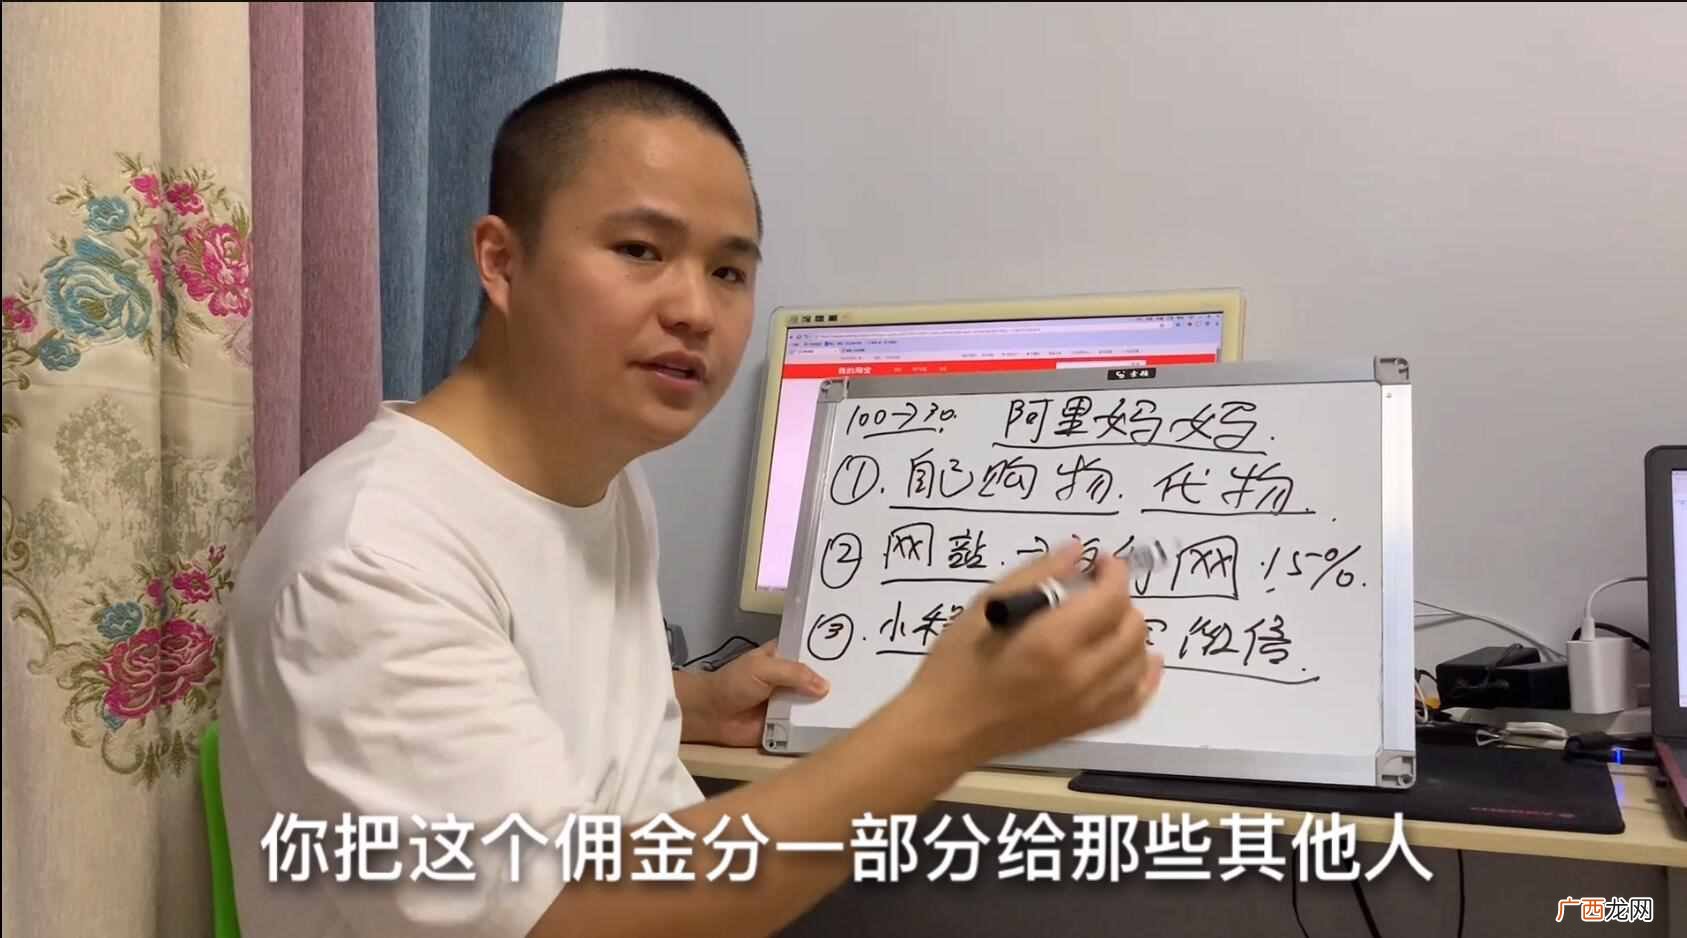 我的淘宝
100→30. 阿里妈妈.
①. 自己购物. 代物.
② 网站. → 网. 15%.
③. 小程 微信.
你把这个佣金分一部分给那些其他人
广西龙网